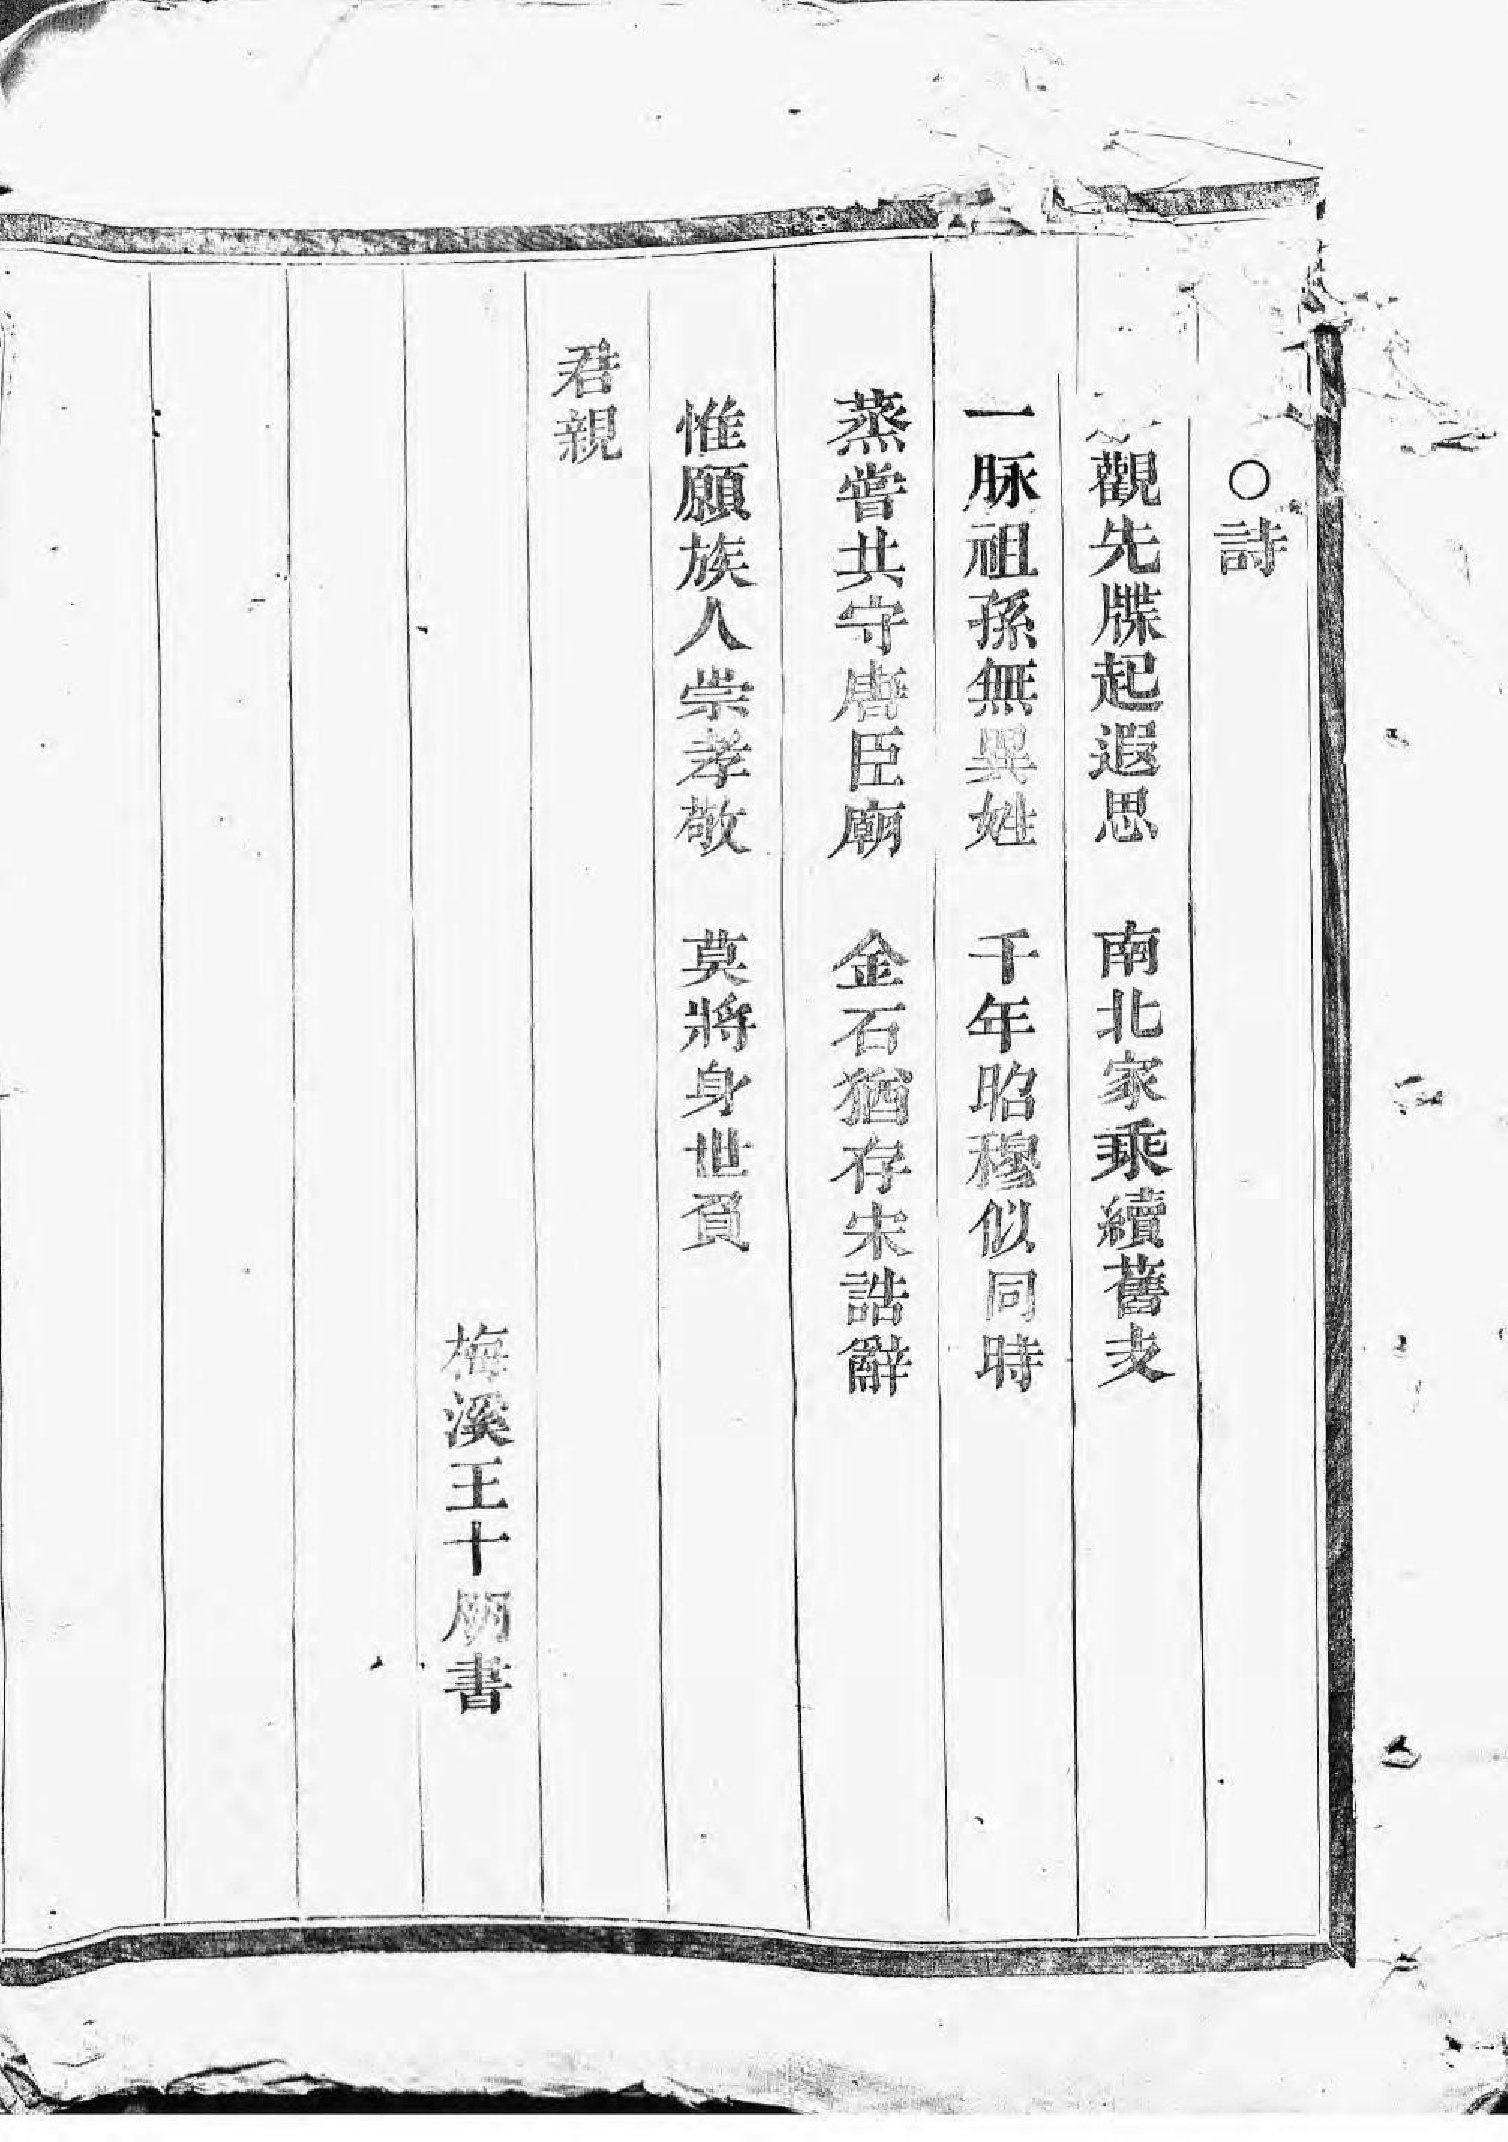 ○詩
觀先牒起遐思　南北家乘續舊支
一脉祖孫無異姓　千年昭穆似同時
蒸嘗共守唐臣廟　金石猶存宋誥辭
惟願族人崇孝敬　莫將身世負
君親
梅溪王十朋書